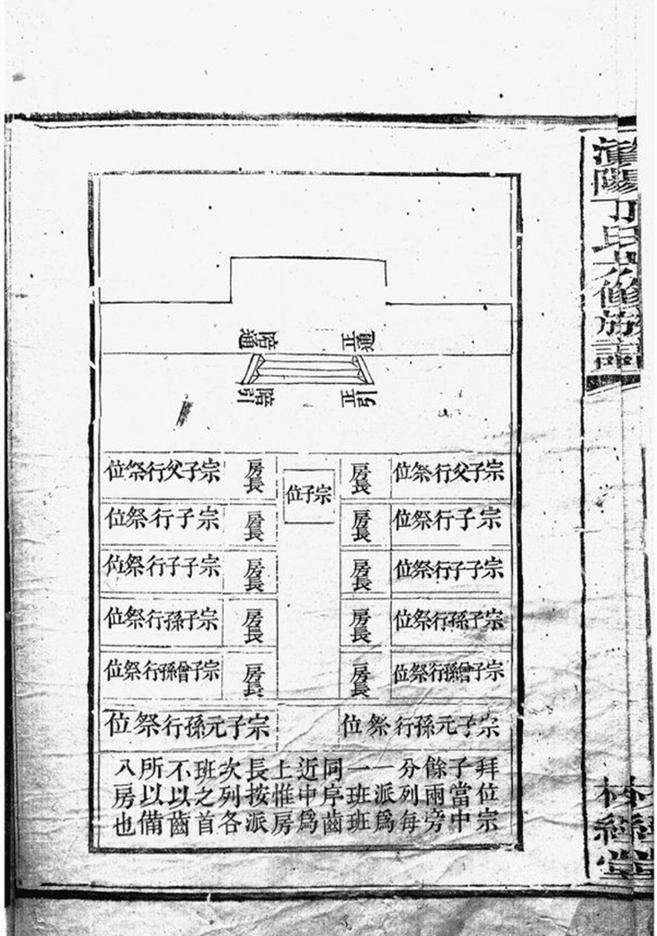 陽丁氏
修族譜
經堂
正通
通陪
正引
引陪
宗子父行祭位
房長
宗子位
房長
宗子父行祭位
宗子行祭位
房長
房長
宗子行祭位
宗子子行祭位
房長
房長
宗子子行祭位
宗子孫行祭位
房長
房長
宗子孫行祭位
宗子曾孫行祭位
房長
房長
宗子曾孫行祭位
宗子元孫行祭位
宗子元孫行祭位
拜位宗
子當中
餘兩旁
分列每
一派爲
一班班
同序齒
近中爲
上惟房
長按派
次列各
班之首
不以齒
所以備
八房也